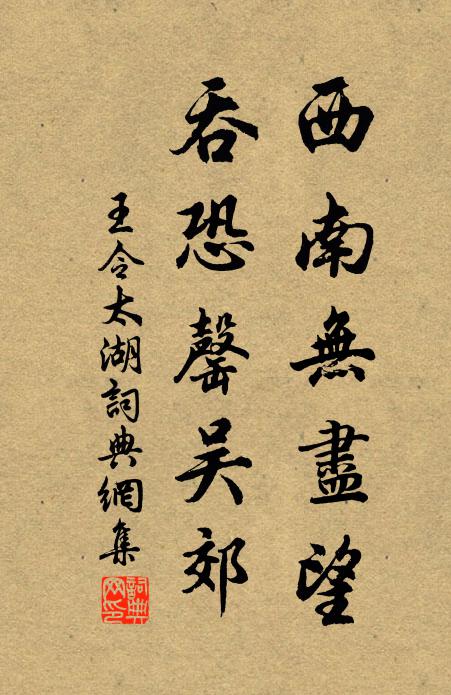 西南無盡望
吞恐罄吴郊
王令太湖詞典網集
詞典网印